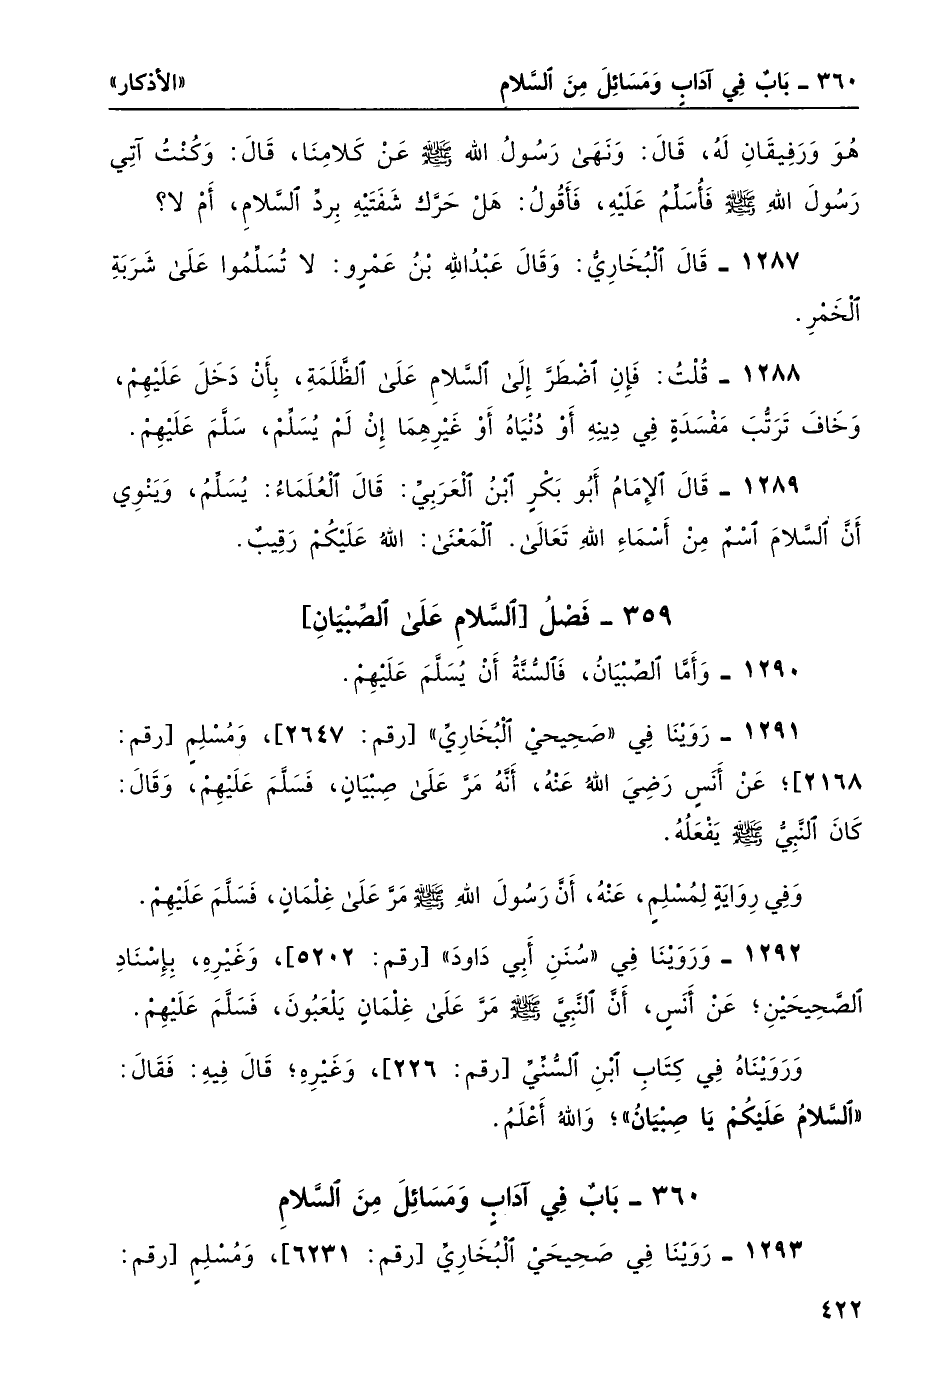 ٣٦٠ ـ بَابٌ فِي آدَابٍ وَمَسَائِلَ مِنَ ٱلسَّلامِ «الأذكار»
هُوَ وَرَفِيقَانِ لَهُ، قَالَ: وَنَهَىٰ رَسُولُ اللهِ ﷺ عَنْ كَلامِنَا، قَالَ: وَكُنْتُ آتِي
رَسُولَ اللهِ ﷺ فَأُسَلِّمُ عَلَيْهِ، فَأَقُولُ: هَلْ حَرَّكَ شَفَتَيْهِ بِردِّ ٱلسَّلامِ، أَمْ لا؟
١٢٨٧ ـ قَالَ ٱلْبُخَارِيُّ: وَقَالَ عَبْدُاللهِ بْنُ عَمْرٍو: لا تُسَلِّمُوا عَلَىٰ شَرَبَةِ
ٱلْخَمْرِ.
١٢٨٨ ـ قُلْتُ: فَإِنِ ٱضْطَرَّ إِلَىٰ ٱلسَّلامِ عَلَىٰ ٱلظَّلَمَةِ، بِأَنْ دَخَلَ عَلَيْهِمْ،
وَخَافَ تَرَتُّبَ مَفْسَدَةٍ فِي دِينِهِ أَوْ دُنْيَاهُ أَوْ غَيْرِهِمَا إِنْ لَمْ يُسَلِّمْ، سَلَّمَ عَلَيْهِمْ.
١٢٨٩ ـ قَالَ الإِمَامُ أَبُو بَكْرٍ ٱبْنُ ٱلْعَرَبِيِّ: قَالَ ٱلْعُلَمَاءُ: يُسَلِّمُ، وَيَنْوِي
أَنَّ ٱلسَّلامَ ٱسْمٌ مِنْ أَسْمَاءِ اللهِ تَعَالَىٰ. ٱلْمَعْنَىٰ: اللهُ عَلَيْكُمْ رَقِيبٌ.
٣٥٩ ـ فَصْلُ [ٱلسَّلامِ عَلَىٰ ٱلصِّبْيَانِ]
١٢٩٠ ـ وَأَمَّا ٱلصِّبْيَانُ، فَٱلسُّنَّةُ أَنْ يُسَلَّمَ عَلَيْهِمْ.
١٢٩١ ـ رَوَيْنَا فِي «صَحِيحيْ ٱلْبُخَارِيِّ» [رقم: ٢٦٤٧]، وَمُسْلِمٍ [رقم:
٢١٦٨]؛ عَنْ أَنَسٍ رَضِيَ اللهُ عَنْهُ، أَنَّهُ مَرَّ عَلَىٰ صِبْيَانٍ، فَسَلَّمَ عَلَيْهِمْ، وَقَالَ:
كَانَ ٱلنَّبِيُّ ﷺ يَفْعَلُهُ.
وَفِي رِوَايَةٍ لِمُسْلِمٍ، عَنْهُ، أَنَّ رَسُولَ اللهِ ﷺ مَرَّ عَلَىٰ غِلْمَانٍ، فَسَلَّمَ عَلَيْهِمْ.
١٢٩٢ ـ وَرَوَيْنَا فِي «سُنَنِ أَبِي دَاودَ» [رقم: ٥٢٠٢]، وَغَيْرِهِ، بِإِسْنَادِ
ٱلصَّحِيحَيْنِ؛ عَنْ أَنَسٍ، أَنَّ ٱلنَّبِيَّ ﷺ مَرَّ عَلَىٰ غِلْمَانٍ يَلْعَبُونَ، فَسَلَّمَ عَلَيْهِمْ.
وَرَوَيْنَاهُ فِي كِتَابِ ٱبْنِ ٱلسُّنِّيِّ [رقم: ٢٢٦]، وَغَيْرِهِ؛ قَالَ فِيهِ: فَقَالَ:
«ٱلسَّلامُ عَلَيْكُمْ يَا صِبْيَانُ»؛ وَاللهُ أَعْلَمُ.
٣٦٠ ـ بَابٌ فِي آدَابٍ وَمَسَائِلَ مِنَ ٱلسَّلامِ
١٢٩٣ ـ رَوَيْنَا فِي صَحِيحَيْ ٱلْبُخَارِيِّ [رقم: ٦٢٣١]، وَمُسْلِمٍ [رقم:
٤٢٢